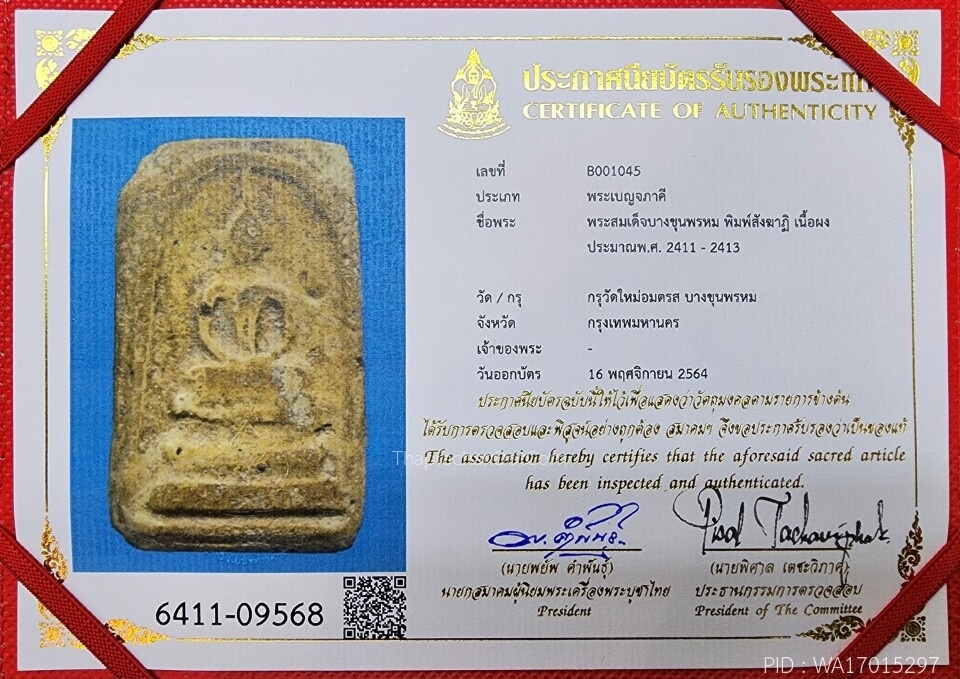 ประกาศนียบัตรรับรองพระแท้
CERTIFICATE OF AUTHENTICITY
เลขที่ B001045
ประเภท พระเบญจภาคี
ชื่อพระ พระสมเด็จบางขุนพรหม พิมพ์สังฆาฏิ เนื้อผง
ประมาณพ.ศ. 2411 - 2413
วัด / กรุ กรุวัดใหม่อมตรส บางขุนพรหม
จังหวัด กรุงเทพมหานคร
เจ้าของพระ -
วันออกบัตร 16 พฤศจิกายน 2564
ประกาศนียบัตรฉบับนี้ให้ไว้เพื่อแสดงว่าวัตถุมงคลตามรายการข้างต้น
ได้รับการตรวจสอบและพิสูจน์อย่างถูกต้อง สมาคมฯ จึงขอประกาศรับรองว่าเป็นของแท้
The association hereby certifies that the aforesaid sacred article
has been inspected and authenticated.
(นายพยัพ คำพันธุ์) (นายพิศาล เตชะวิภาค)
นายกสมาคมผู้นิยมพระเครื่องพระบูชาไทย ประธานกรรมการตรวจสอบ
President President of The Committee
6411-09568
PID : WA17015297